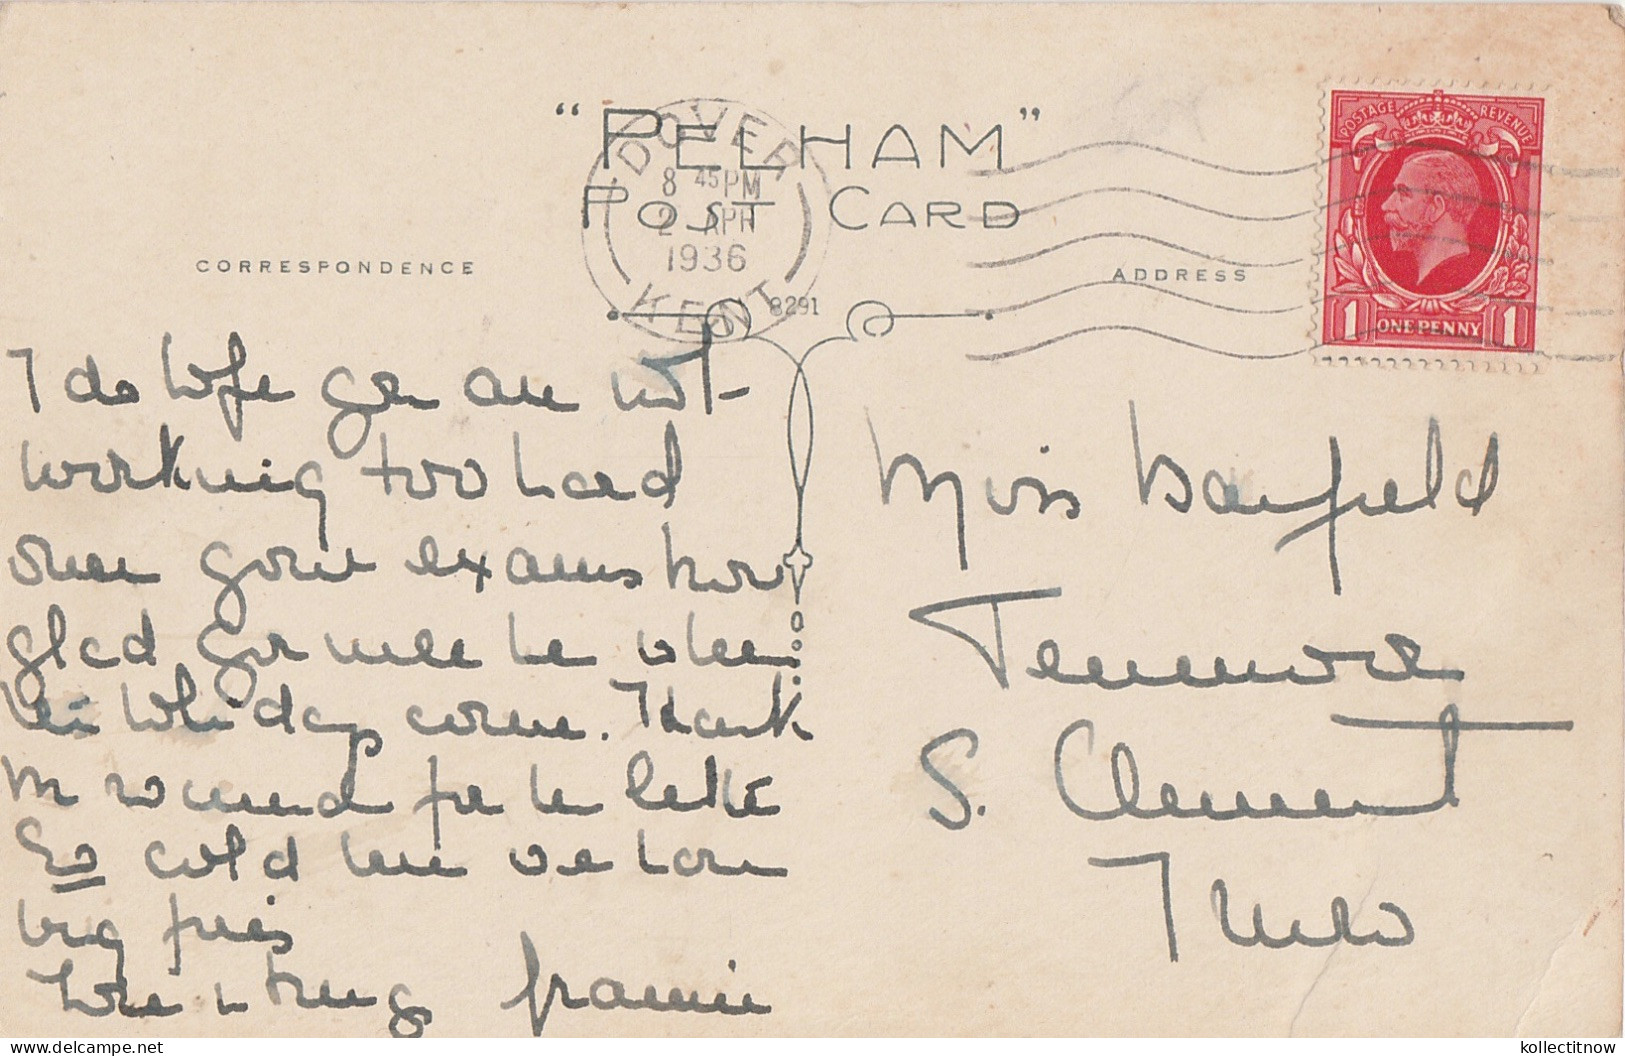 "PELHAM"
POST CARD
DOVER
8 45 PM
2 APR
1936
KENT
CORRESPONDENCE
ADDRESS
8291
POSTAGE REVENUE
1 ONE PENNY 1
I do hope you are not
working too hard
over your exams how
glad you will be when
the holidays come. Thank
for the letter
So cold here we have
big fires
Love & hugs
Miss Barfield
Tenemore
S. Clement
Truro
kollectitnow